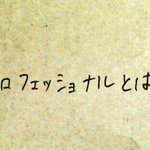 ロフェッショナルとは